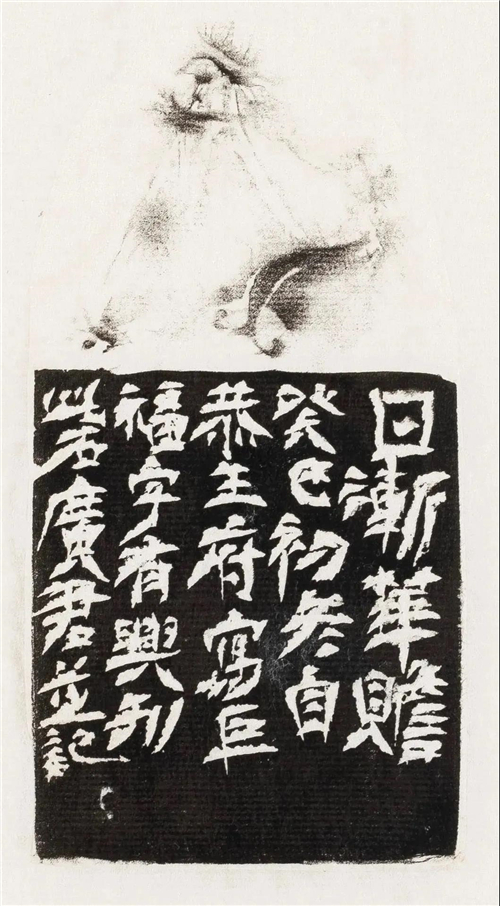 日漸華贍
癸巳初冬自
恭王府寫巨
福字有興刊
此石廣君並記